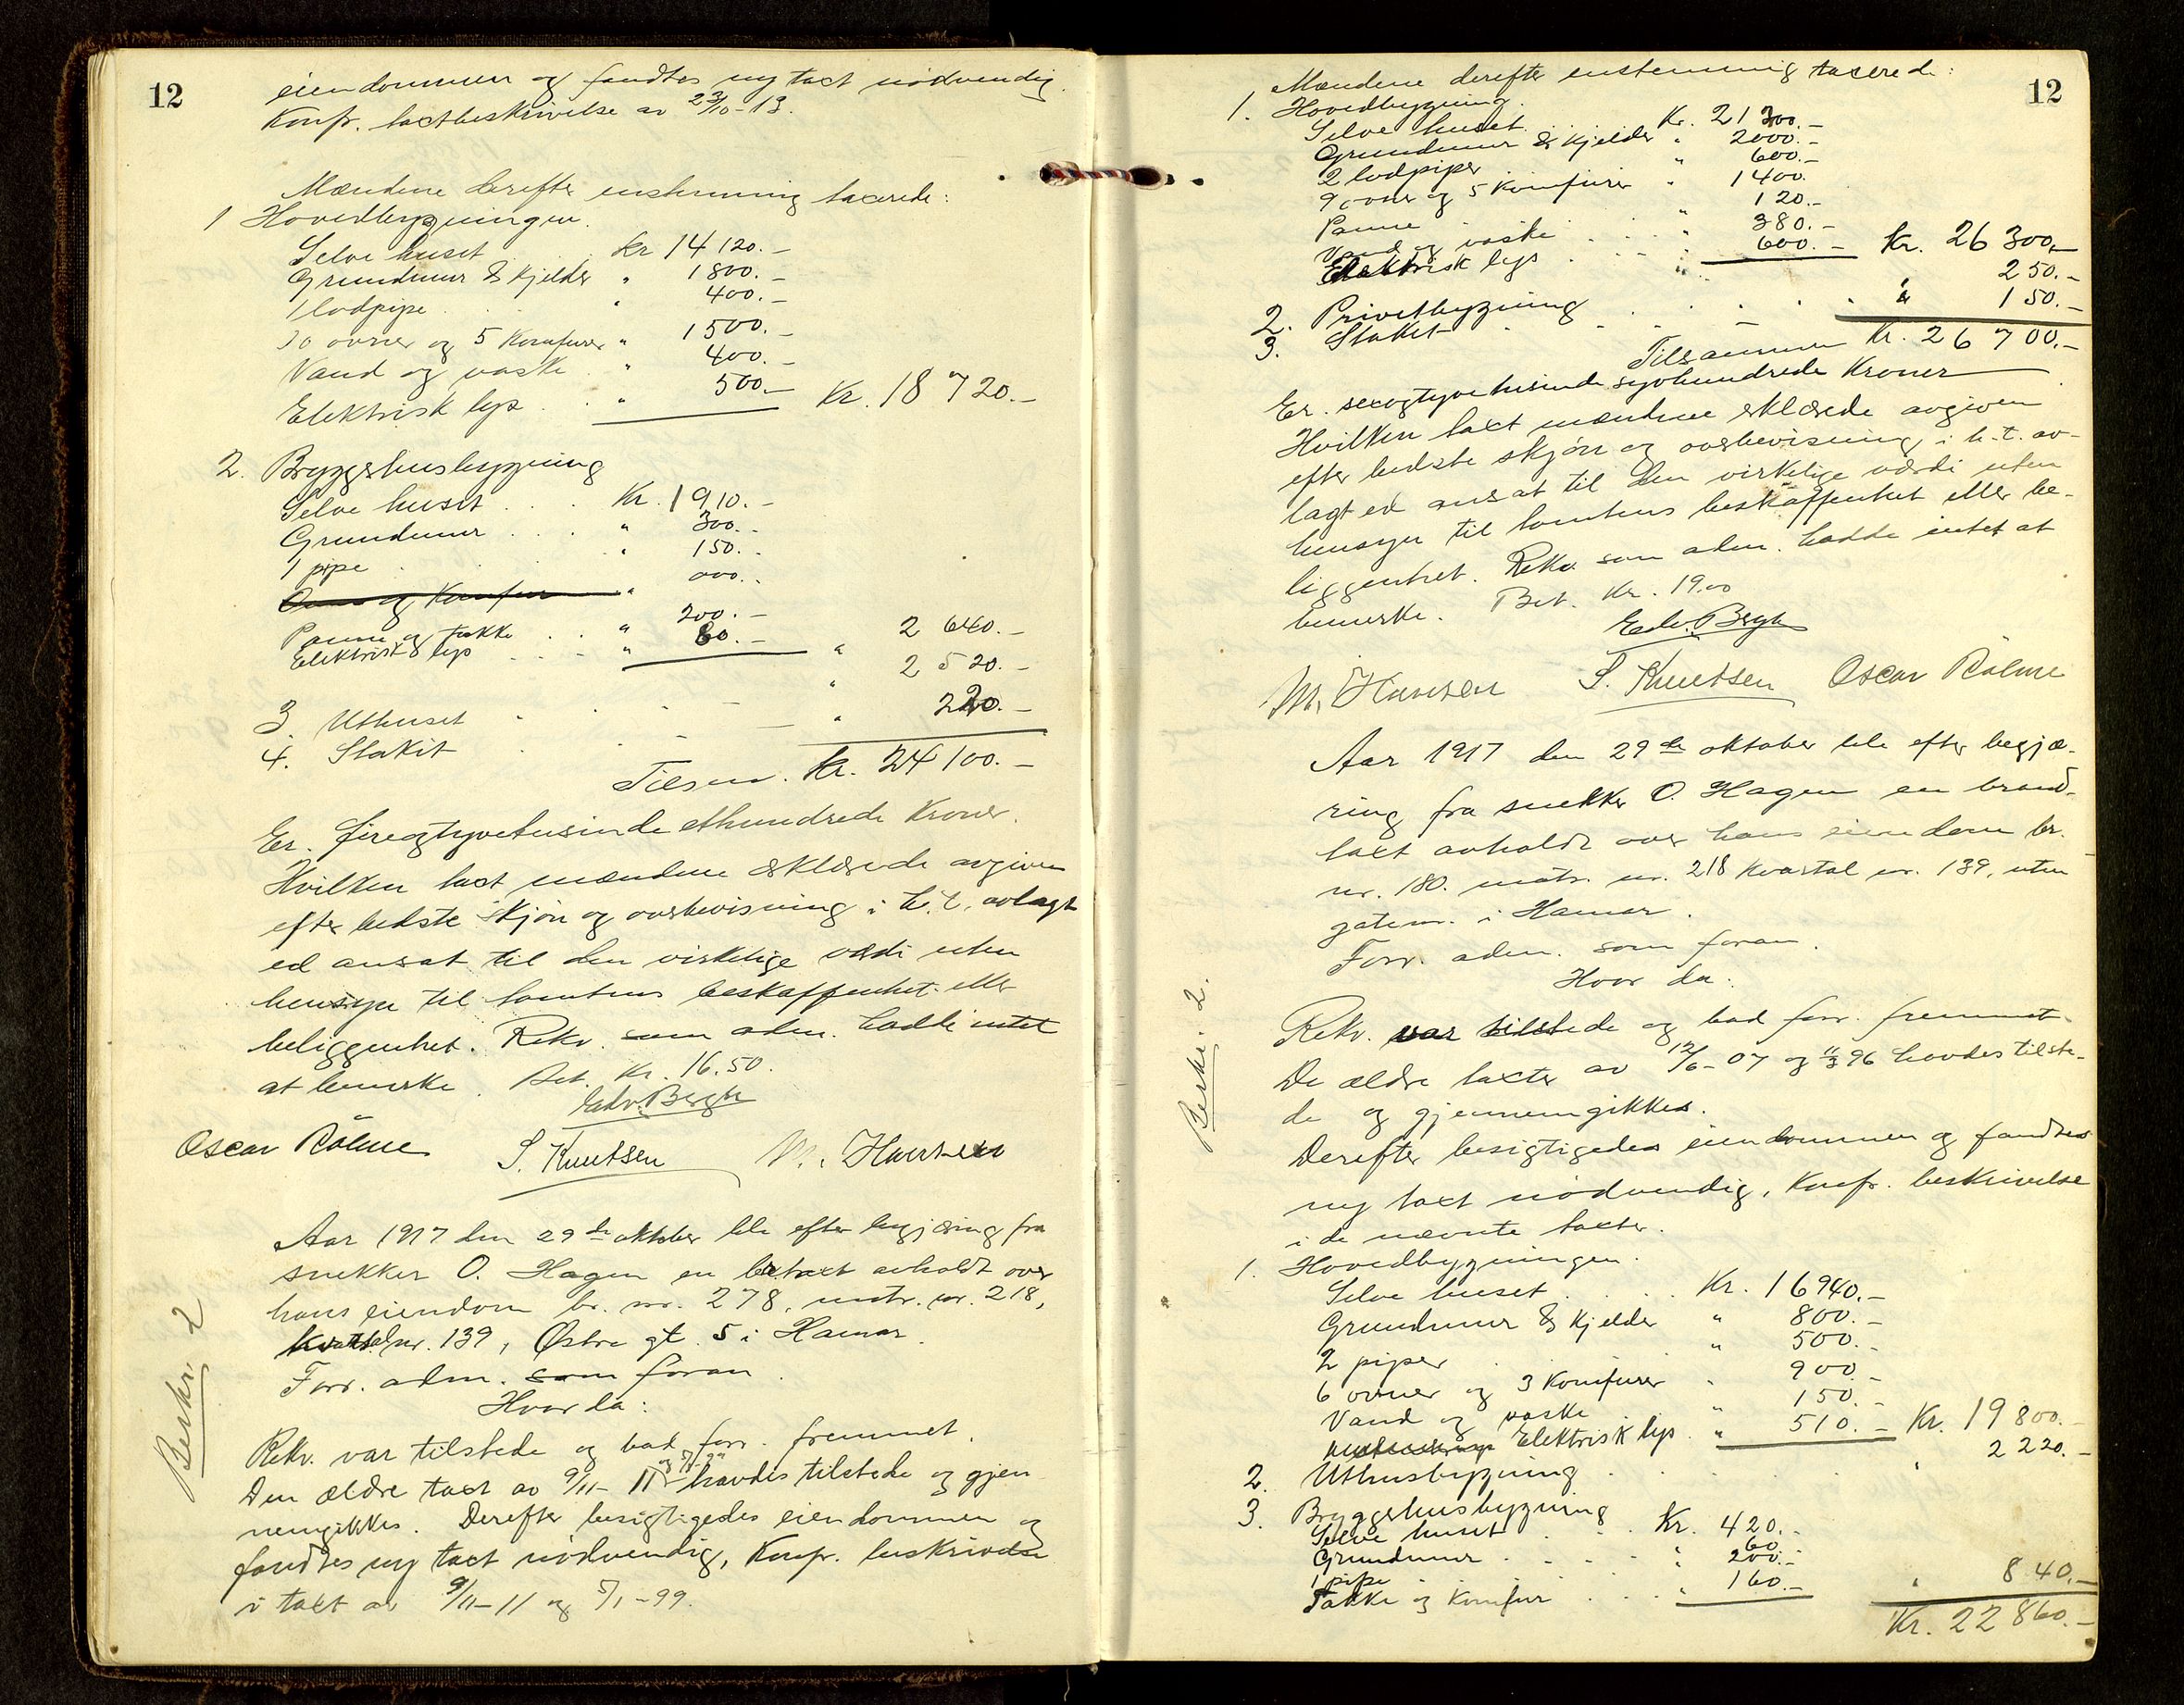 12
eiendommen og fandtes ny taxt nödvendig.
Konfr. taxtbeskrivelse av 23/10-13.
Mændene derefter enstemmig taxerede:
1 Hovedbygningen.
Selve huset . . Kr 14 120.-
Grundmur & Kjelder " 1 800.-
1 lodpipe . . " 400.-
10 ovner og 5 Komfurer " 1 500.-
Vand og vaske . " 400.-
Elektrisk lys . . " 500.- Kr. 18 720.-
2. Bryggehusbygning
Selve huset . . . Kr. 1 910.-
Grundmur . . . " 300.-
1 pipe . " 150.-
Ovn og Komfur " 000.-
Panne og takke . . " 200.-
Elektrisk lys . . . " 80.- " 2 640.-
3. Uthuset . . . - " 2 520.-
4. Stakit . . - - " 220.-
Tilsm. Kr. 24 100.-
Er. fireogtyvetusinde ethundrede Kroner.
Hvilken taxt mændene erklærede avgiven
efter bedste skjön og overbevisning i h.t. avlagt
ed ansat til den virkelige værdi uten
hensyn til tomtens beskaffenhet eller
beliggenhet. Rekv. som adm. hadde intet
at bemerke. Bet. Kr. 16.50.
Edv. Bergh
Oscar Rölme S. Knutsen M. Hansen
Aar 1917 den 29de oktober ble efter begjæring fra
snekker O. Hagen en br.taxt avholdt over
hans eiendom br. nr. 278, matr. nr. 218,
Kvartal nr. 139, Østre gt. 5 i Hamar.
Forr. adm. som foran.
Hvor da:
Beskr. 2
Rekv. var tilstede og bad forr. fremmet.
Den ældre taxt av 9/11-11 havdes tilstede og gjen
nemgikkes. Derefter besigtigedes eiendommen og
fandtes ny taxt nödvendig, Konfr. beskrivelse
i taxt av 9/11-11 og 5/1-99.
12
Mændene derefter enstemmig taxerede:
1. Hovedbygning.
Selve huset . . Kr. 21 300.-
Grundmur & Kjelder " 2000.-
2 lodpiper " 600.-
9 ovner og 5 Komfurer " 1 400.
Panne " 120.-
Vand og vaske . . . " 380.-
Elektrisk lys . . . " 600.- Kr. 26 300.-
2. Privetbygning . . . . " 250.-
3. Stakit . - - - " 150.-
Tilsammen Kr. 26 700.-
Er. sexogtyvetusinde syvhundrede Kroner
Hvilken taxt mændene erklærede avgiven
efter bedste skjön og overbevisning i h.t. av-
lagt ed ansat til den virkelige værdi uten
hensyn til tomtens beskaffenhet eller be-
liggenhet. Rekv. som adm. hadde intet at
bemerke. Bet. Kr. 19.00
Edv. Bergh
M. Hansen S. Knutsen Oscar Rölme
Aar 1917 den 29de oktober ble efter begjæ-
ring fra snekker O. Hagen en brand-
taxt avholdt over hans eiendom br.
nr. 180. matr. nr. 218 Kvartal nr. 139, uten
gatenr. i Hamar.
Forr. adm. som foran.
Hvor da:
Beskr. 2.
Rekv. var tilstede og bad forr. fremmet.
De ældre taxter av 12/6-07 og 11/3 96 havdes tilste-
de og gjennemgikkes.
Derefter besigtigedes eiendommen og fandtes
ny taxt nödvendig, Konfr. beskrivelse
i de nævnte taxter.
1. Hovedbygningen.
Selve huset . . . . Kr. 16 940.-
Grundmur & Kjelder " 800.-
2 piper . " 500.-
6 ovner og 3 Komfurer " 900.-
Vand og vaske . " 150.-
Elektrisk lys . " 510.- Kr. 19 800.-
2. Uthusbygning . . . . . " 2 220.-
3. Bryggehusbygning
Selve huset . . . Kr. 420.-
Grundmur . . . . " 60
1 pipe " 200.-
Takke og Komfur . . . " 160.- " 840.-
Kr. 22 860.-